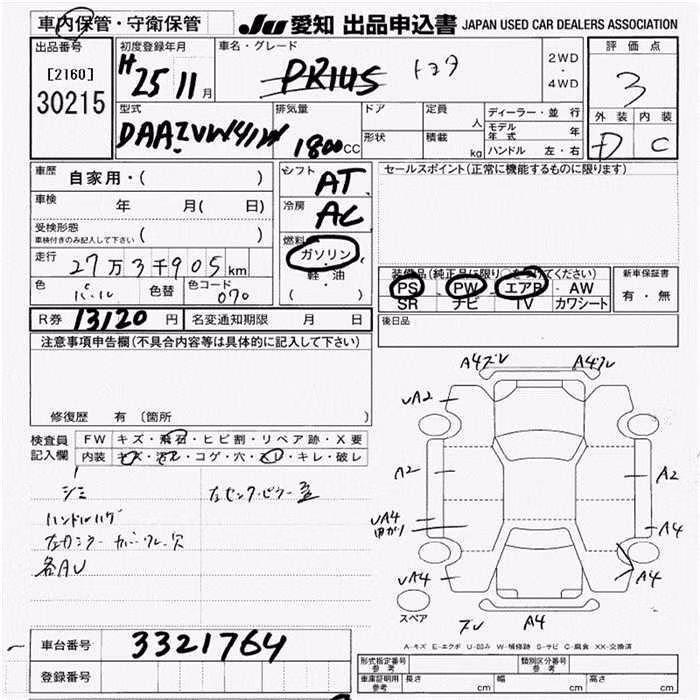 車内保管・守衛保管
JU 愛知 出品申込書 JAPAN USED CAR DEALERS ASSOCIATION
出品番号
[2160]
30215
初度登録年月
H25 11月
車名・グレード
PRIUS トヨタ
2WD
・
4WD
評価点
3
外装 内装
D C
型式
DAAZVW41W
排気量
1800CC
ドア
形状
定員 人
積載 kg
ディーラー・並行
モデル年式 年
ハンドル 左・右
車歴
自家用・( )
車検
年 月( 日)
受検形態
車検付きのみ記入して下さい ( )
走行
27万3千905km
色
パール
色替
色コード
070
シフト
AT
冷房
AC
燃料
ガソリン
・
軽・油
( )
セールスポイント(正常に機能するものに限ります)
装備品(純正品に限り○をつけてください)
PS PW エアB AW
SR ナビ TV カワシート
新車保証書
有・無
R券 13120円
名変通知期限 月 日
後日品
注意事項申告欄(不具合内容等は具体的に記入して下さい)
修復歴 有 (箇所 )
検査員
記入欄
FW キズ・飛石・ヒビ割・リペア跡・X要
内装 キズ・汚れ・コゲ・穴・スレ・キレ・破レ
シミ
ハンドルハゲ
各AU
A4ズレ A4ズレ
UA2
A2
A2
UA4
曲がり
A4
UA4
A4
スペア
ズレ
A4
A-キズ E-エクボ U-凹み W-補修跡 S-サビ C-腐食 XX-交換済
車台番号
3321764
登録番号
形式指定番号
参考
類別区分番号
参考
車庫証明用
参考
長さ cm
幅 cm
高さ cm